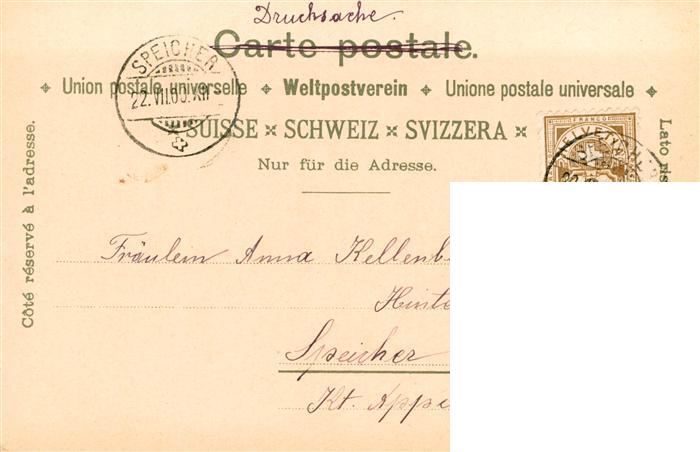 Drucksache.
Carte postale.
SPEICHER
Union postale universelle ✦ Weltpostverein ✦ Unione postale universale
SUISSE × SCHWEIZ × SVIZZERA ×
Nur für die Adresse.
Côté réservé à l'adresse.
Lato ris
FRANCO
Fräulein Anna Kellenb
Hinte
Speicher
Kt. Appe